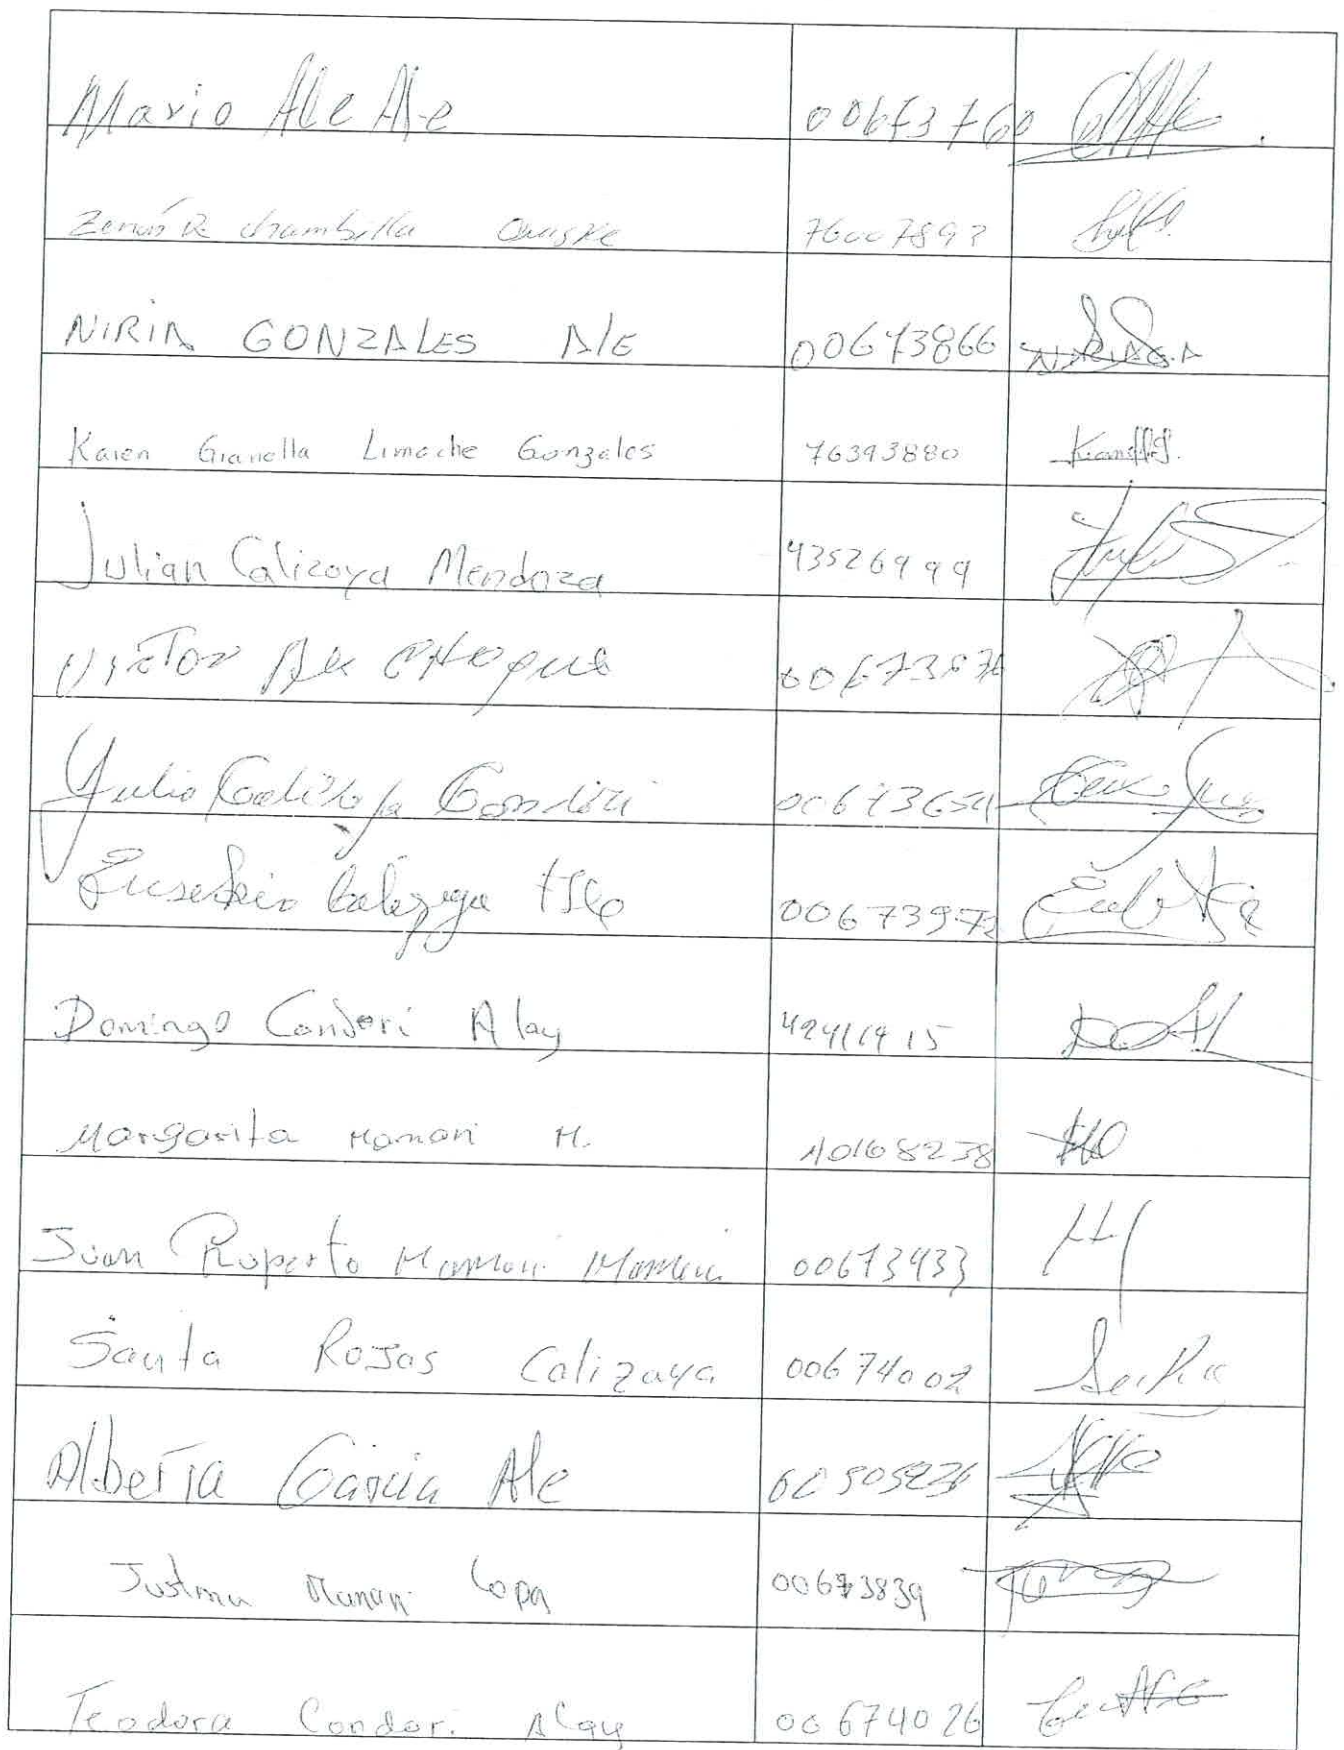 Mario Ale Ale 00673760
Zenón R. chambilla Quispe 76007893
NIRIA GONZALES Ale 00673866 NIRIAG.A
Karen Gianella Limache Gonzales 76393880
Julian Calizaya Mendoza 43526999
VICTOR Ale CHOque
Yulio Calizaya Condori 00673654
Eusebio Calizaya 00673972
Domingo Condori Alay
Margarita Mamani M.
Juan Ruperto Mamani Mamani 00673933
Santa Rojas Calizaya 00674002
Alberta Garcia Ale
Justina Mamani Copa 00673839
Teodora Condori Alay 00674026